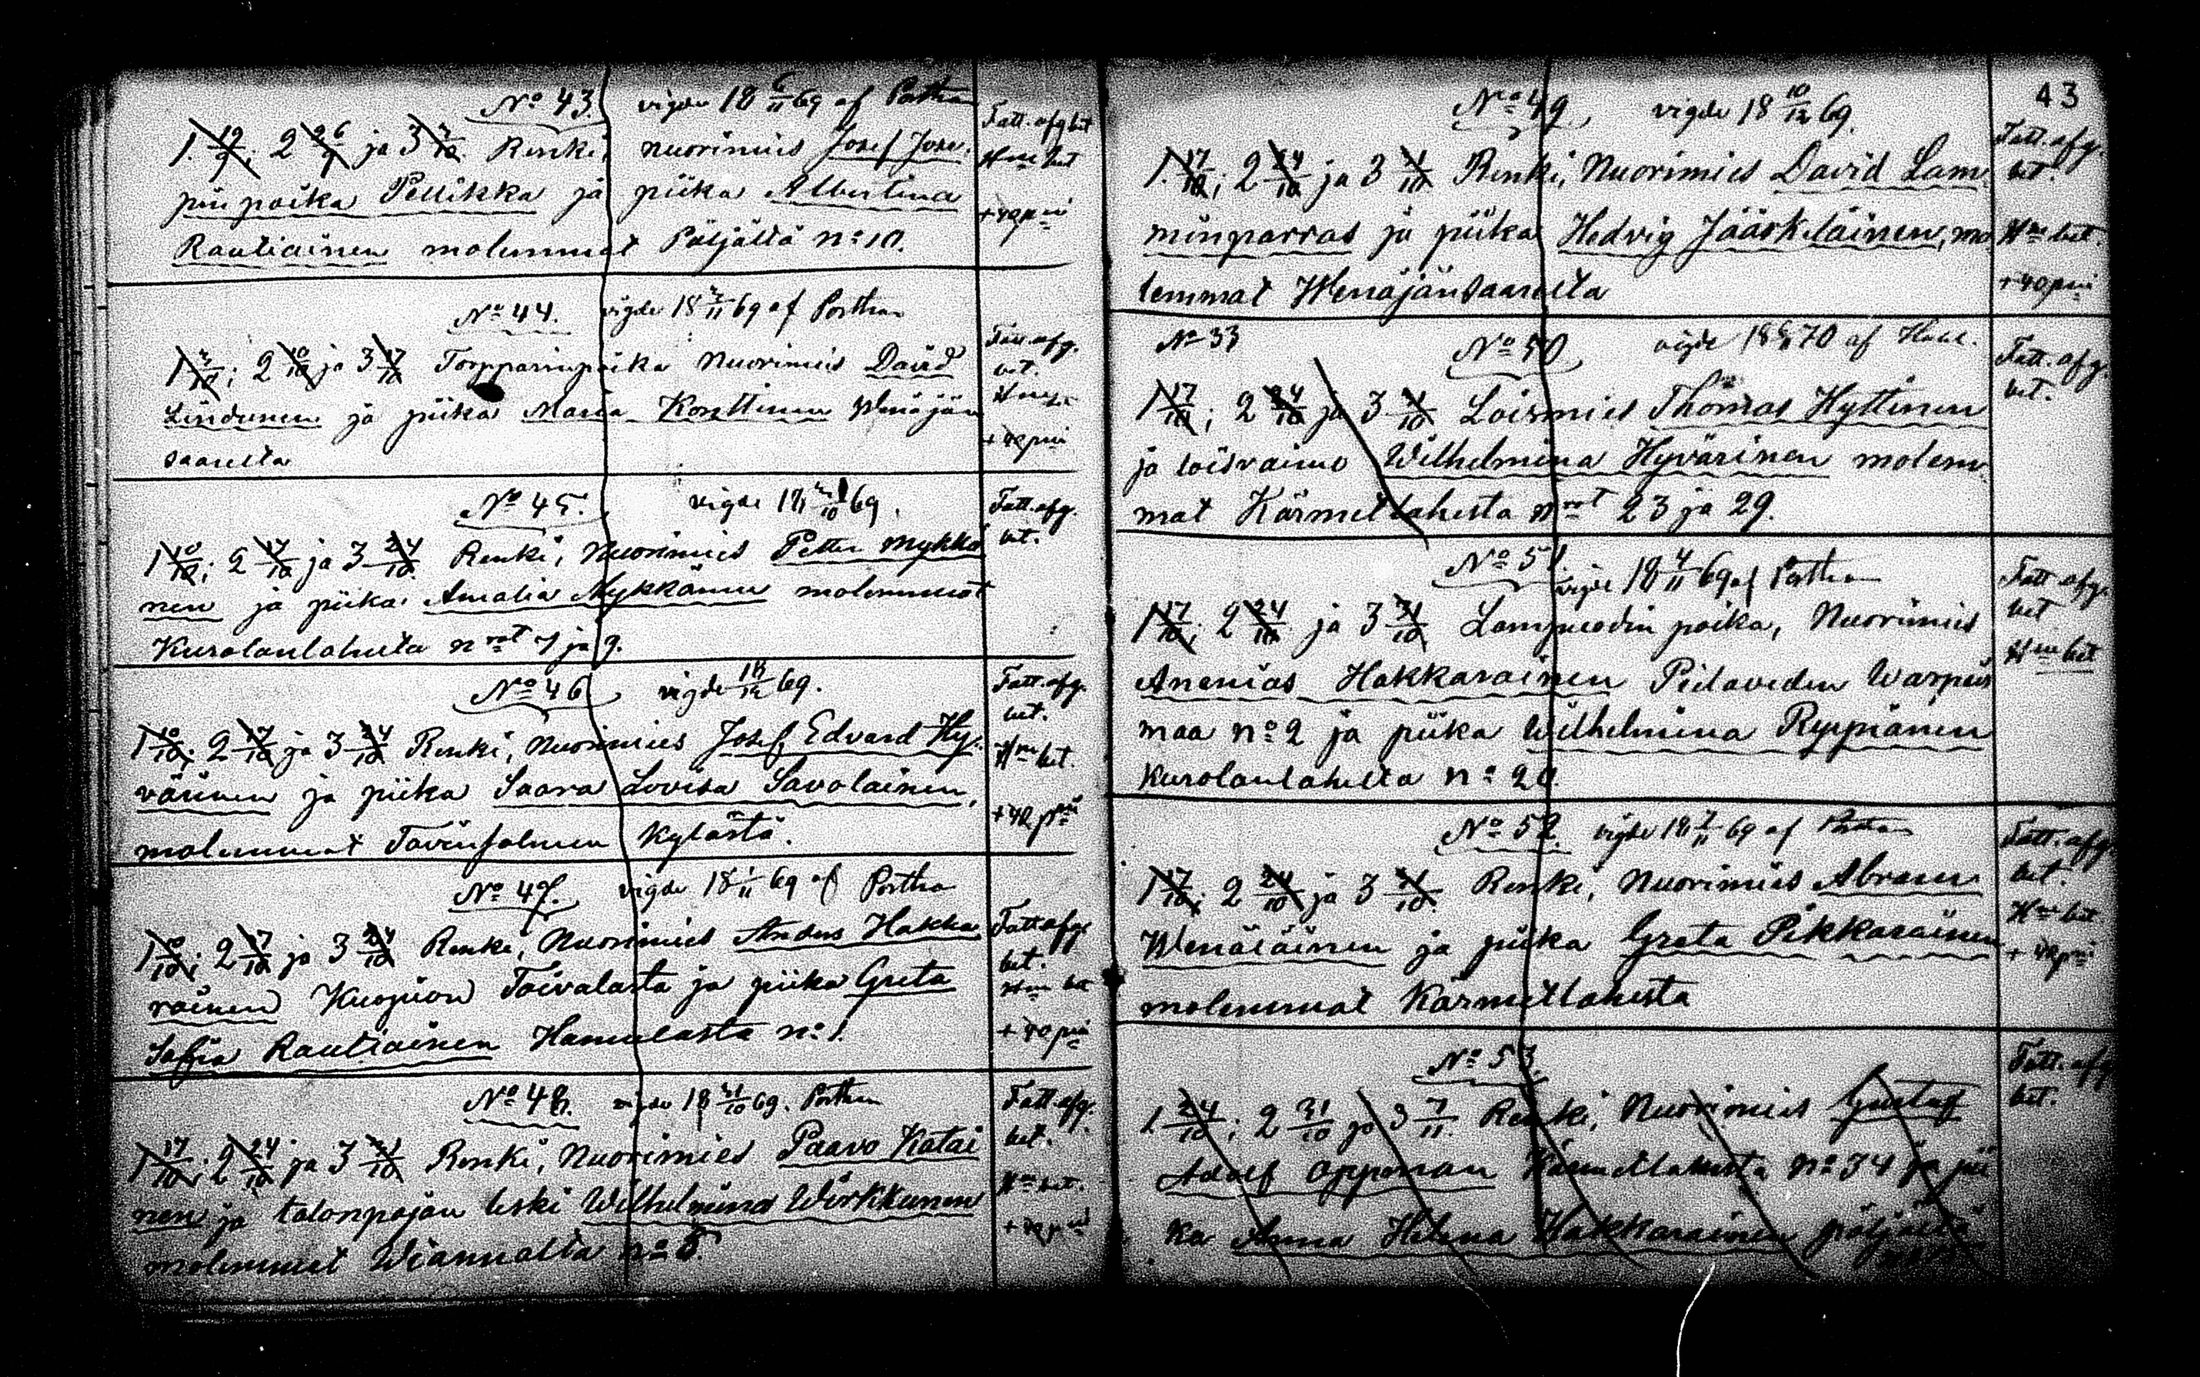 No 43. vigde 18 6/11 69 af Porthan
1. 19/9; 2 26/9 ja 3 3/10 Renki, nuorimies Josef Jose-
pinpoika Pellikka ja piika Albertina
Rautiainen molemmat Pöljältä no 10.
Fatt. afg bet
Hm bet
+ 40 pni
No 44. vigde 18 7/11 69 af Porthan
1 3/10; 2 10/10 ja 3 17/10 Torpparinpoika Nuorimies David
Lindunen ja piika Maria Konttinen Wenäjän
saarelta
Fatt. afg.
bet.
+ 40 pni
No 45. vigde 18 /10 69.
1 10/10; 2 17/10 ja 3 24/10 Renki, Nuorimies Petter Mykkä
nen ja piika Amalia Mykkänen molemmat
Kurolanlahelta nrot 7 ja 9.
Fatt. afg.
bet.
No 46 vigde /12 69.
1 10/10; 2 17/10 ja 3 24/10 Renki, Nuorimies Josef Edvard Hy-
värinen ja piika Saara Lovisa Savolainen,
molemmat Tavinsalmen kylästä.
Fatt. afg.
bet.
Hm bet.
+ 40 pni
No 47. vigde 18 1/11 69 af Portha
1 10/10; 2 17/10 ja 3 24/10 Renki, Nuorimies Anders Hakka
rainen Kuopion Toivalasta ja piika Greta
Sofia Rautiainen Hamulasta no 1.
Fatt afg
bet.
Hm bet
+ 40 pni
No 48. vigde 18 31/10 69. Porthan
1 17/10; 2 24/10 ja 3 31/10 Renki, Nuorimies Paavo Katai
nen ja talonpojan leski Wilhelmina Wirkkunen
molemmat Wiannalta no 5.
Fatt. afg.
bet.
Hm bet.
+ 40 pni
43
No 49 vigde 18 10/12 69.
1. 17/10; 2 24/10 ja 3 31/10 Renki, Nuorimies David Lam
minparras ja piika Hedvig Jääskeläinen, mo
lemmat Wenäjänsaarelta
Fatt. afg.
bet.
Hm bet.
+ 40 pni
No 33 No 50 vigde 18 70 af
1 17/10; 2 24/10 ja 3 31/10 Loismies Thomas Hyttinen
ja loisvaimo Wilhelmina Hyvärinen molem
mat Kärmetlahesta nrot 23 ja 29.
Fatt. afg.
bet.
No 51. vigde 18 4/11 69 af Porthan
1 17/10; 2 24/10 ja 3 31/10 Lampuodin poika, Nuorimies
Ananias Hakkarainen Pielaveden Warpais
maa no 2 ja piika Wilhelmina Ryypiänen
Kurolanlahelta no 20.
Fatt afg.
bet
Hm bet
No 52. vigde 18 7/11 69 af Porthan
1 17/10; 2 24/10 ja 3 31/10 Renki, Nuorimies Abram
Wenäläinen ja piika Greta Pikkarainen
molemmat Kärmetlahesta
Fatt. afg.
bet.
Hm bet
+ 40 pni
No 53.
1 24/10; 2 31/10 ja 3 7/11 Renki, Nuorimies Gustaf
Adolf Opponan Kärmetlahesta no 34 ja pii
ka Anna Helena Hakkarainen pöljältä
Fatt. afg
bet.